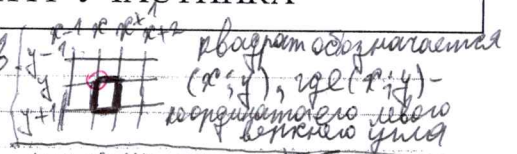 x-1 x x+1 x+2
y-1
y
y+1
квадрат обозначается
(x;y), где (x;y)-
координаты его левого
верхнего угла